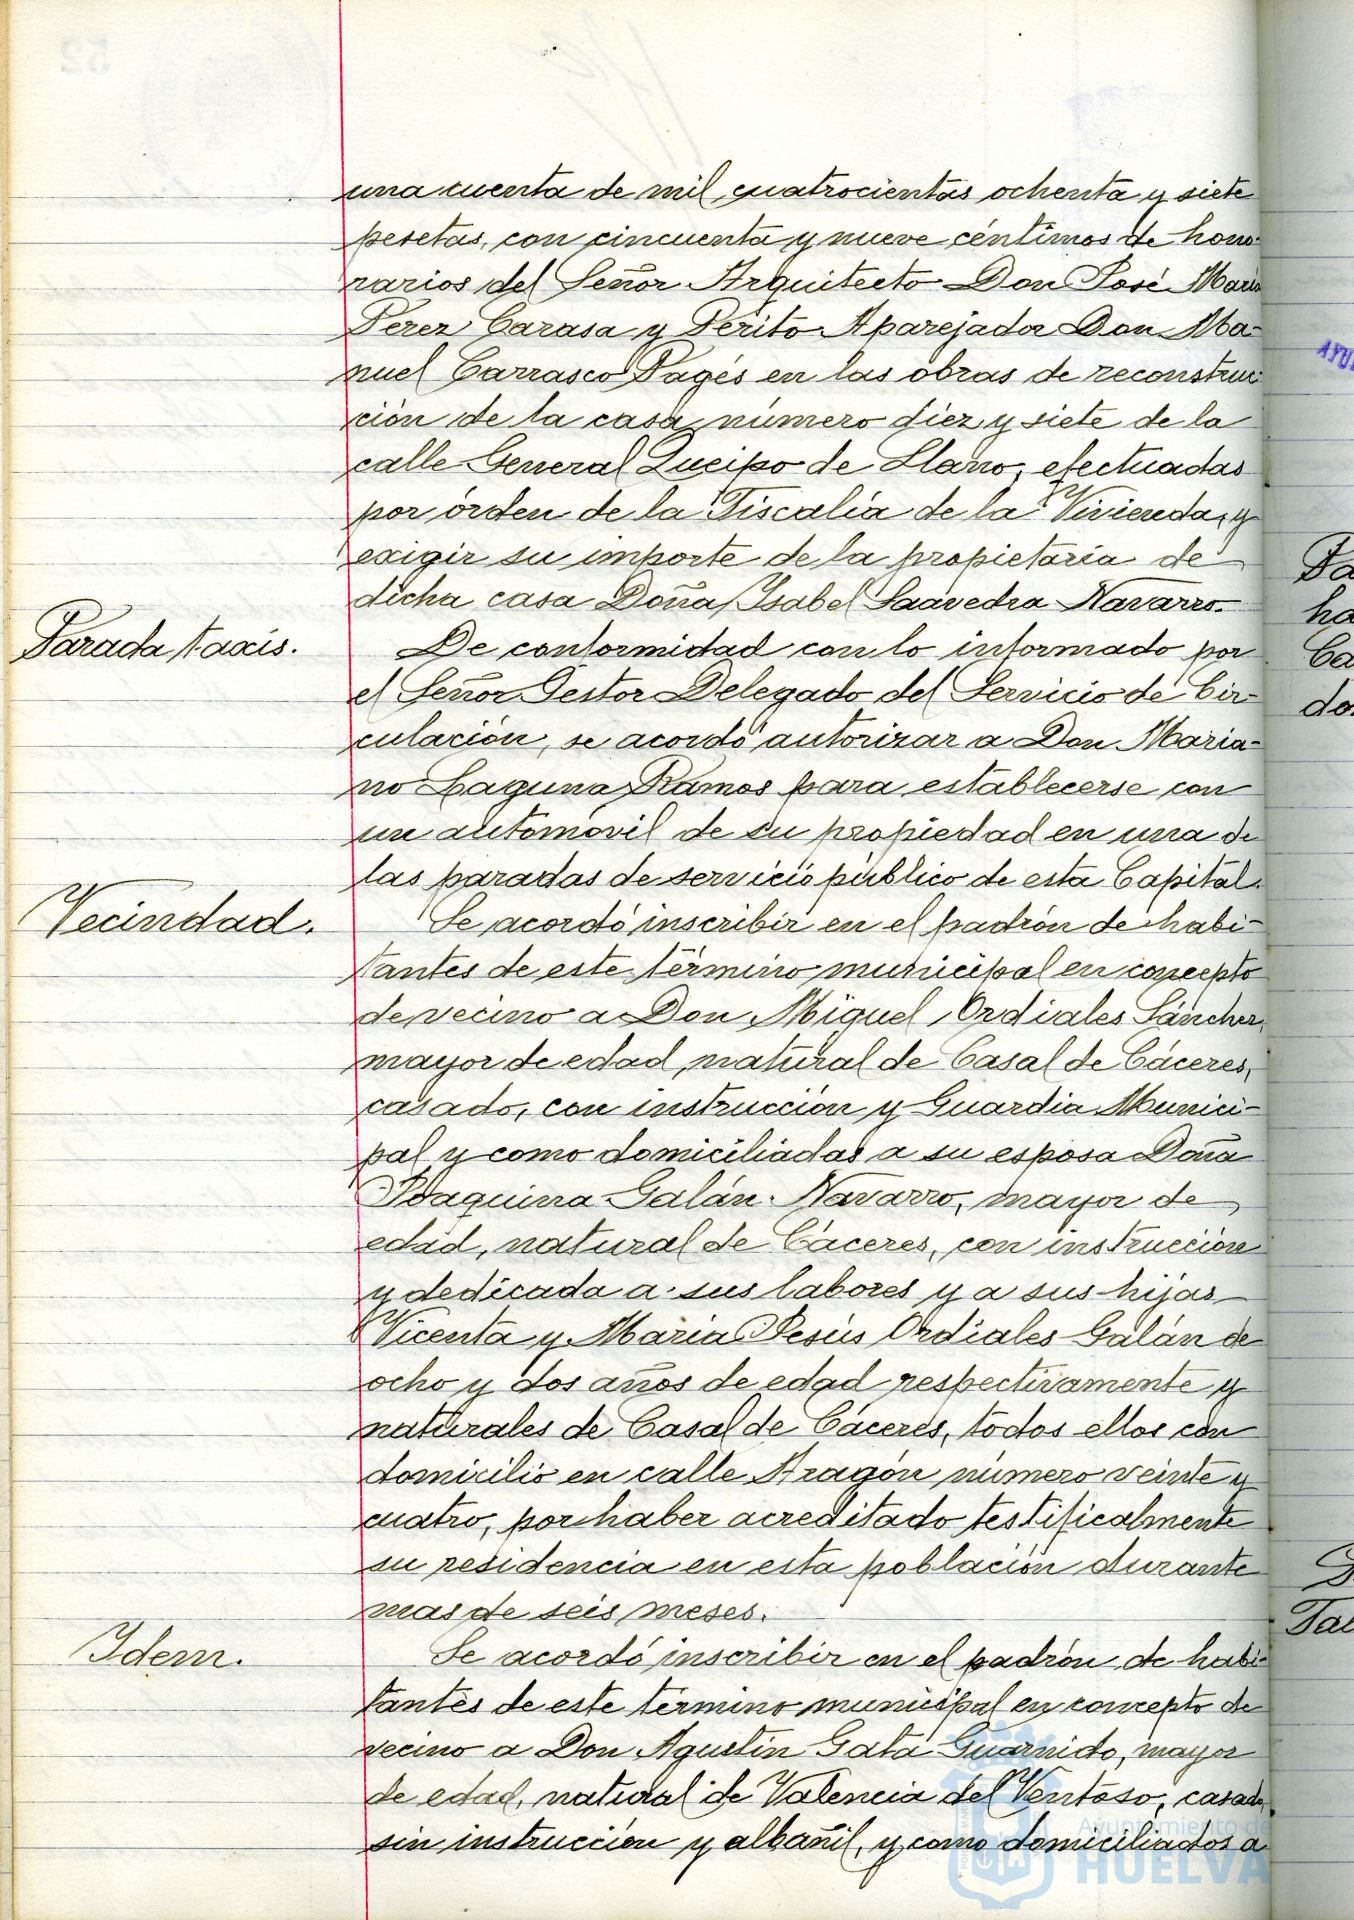 una cuenta de mil cuatrocientas ochenta y siete
pesetas, con cincuenta y nueve céntimos de hono-
rarios del Señor Arquitecto Don José María
Perez Carasa y Perito Aparejador Don Ma-
nuel Carrasco Pagés en las obras de reconstruc-
ción de la casa número diez y siete de la
calle General Queipo de Llano, efectuadas
por órden de la Fiscalía de la Viviereda, y
exigir su importe de la propietaria de
dicha casa Doña Ysabel Saavedra Navarro.
Parada taxis.
De conformidad con lo informado por
el Señor Gestor Delegado del Servicio de Cir-
culación, se acordó autorizar a Don Maria-
no Laguna Ramos para establecerse con
un automóvil de su propiedad en una de
las paradas de servicio público de esta Capital.
Vecindad.
Se acordó inscribir en el padrón de habi-
tantes de este término municipal en concepto
de vecino a Don Miguel Ordiales Sánchez,
mayor de edad, natural de Casal de Cáceres,
casado, con instrucción y Guardia Munici-
pal y como domiciliadas a su esposa Doña
Joaquina Galán Navarro, mayor de
edad, natural de Cáceres, con instrucción
y dedicada a sus labores y a sus hijas
Vicenta y María Jesús Ordiales Galán de
ocho y dos años de edad respectivamente y
naturales de Casal de Cáceres, todos ellos con
domicilio en calle Aragón número veinte y
cuatro, por haber acreditado testificalmente
su residencia en esta población durante
mas de seis meses.
Idem.
Se acordó inscribir en el padrón de habi-
tantes de este término municipal en concepto de
vecino a Don Agustín Gata Guarnido, mayor
de edad, natural de Valencia del Ventoso, casado,
sin instrucción y albañil, y como domiciliados a
Ayuntamiento de
HUELVA